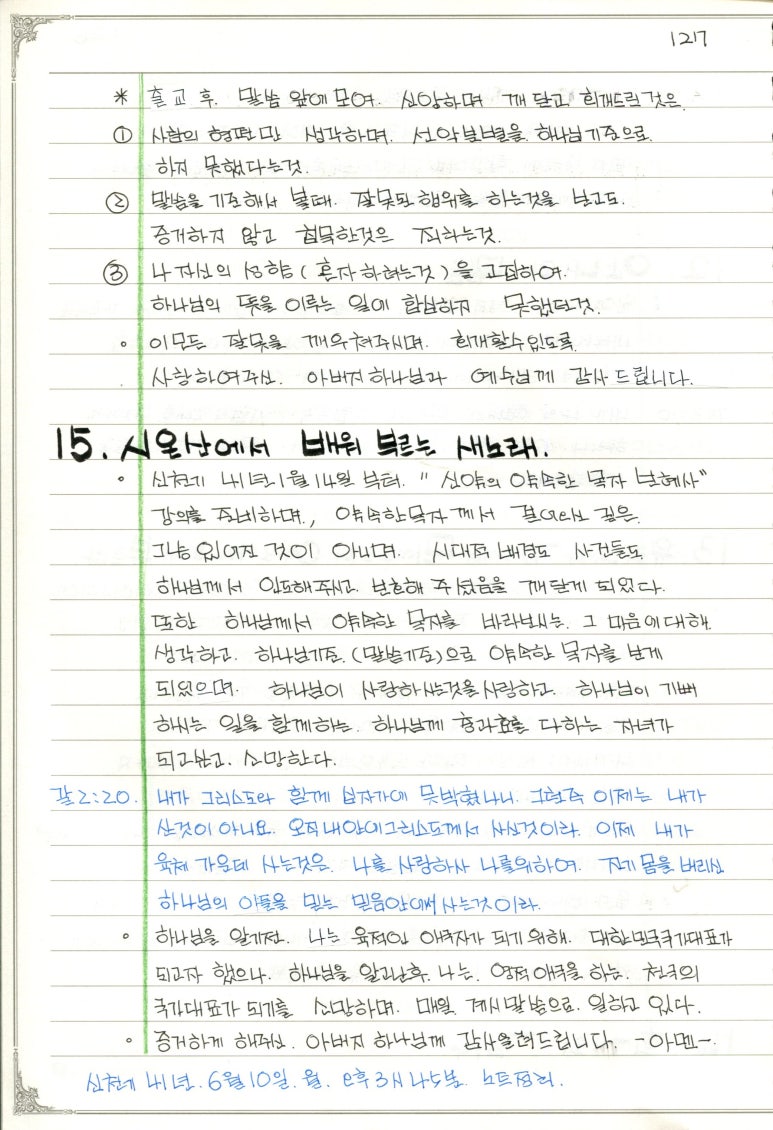 127
* 출교 후. 말씀 앞에 모여. 신앙하며 깨달고 회개드릴것은.
① 사람의 형편만 생각하며. 선악분별을 하나님기준으로.
하지 못했다는것.
② 말씀을 기준해서 볼때. 잘못된 행위를 하는것을 보고도.
증거하지 않고 침묵한것은 죄라는것.
③ 나 자신의 성향(혼자하려는것)을 고집하여.
하나님의 뜻을 이루는 일에 합심하지 못했던것.
◦ 이모든 잘못을 깨우쳐주시며. 회개할수있도록.
사랑하여주신. 아버지하나님과 예수님께 감사드립니다.
15. 시온산에서 배워 부르는 새노래.
◦ 신천기 41년1월14일 부터. "신약의 약속한 목자 보혜사"
강의를 준비하며, 약속한목자께서 걸어오신 길은.
그냥 있어진 것이 아니며. 시대적 배경도 사건들도.
하나님께서 인도해주시고. 보호해 주셨음을 깨닫게 되었다.
또한 하나님께서 약속한 목자를 바라보시는. 그 마음에대해.
생각하고. 하나님기준.(말씀기준)으로 약속한 목자를 보게
되었으며. 하나님이 사랑하시는것을 사랑하고. 하나님이 기뻐
하시는 일을 함께하는. 하나님께 충과효를 다하는 자녀가
되고싶고. 소망한다.
갈2:20. 내가 그리스도와 함께 십자가에 못박혔나니. 그런즉 이제는 내가
산것이 아니요. 오직내안에그리스도께서 사신것이라. 이제 내가
육체 가운데 사는것은. 나를 사랑하사 나를위하여. 자기 몸을 버리신
하나님의 아들을 믿는 믿음안에서 사는것이라.
◦ 하나님을 알기전. 나는 육적인 애국자가 되기 위해. 대한민국국가대표가
되고자 했으나. 하나님을 알고난후. 나는. 영적애국을 하는. 천국의
국가대표가 되기를 소망하며. 매일 계시말씀으로. 일하고 있다.
◦ 증거하게 해주신. 아버지 하나님께 감사올려드립니다. -아멘-.
신천기 41년. 6월10일. 월. 오후3시45분. 노트정리.